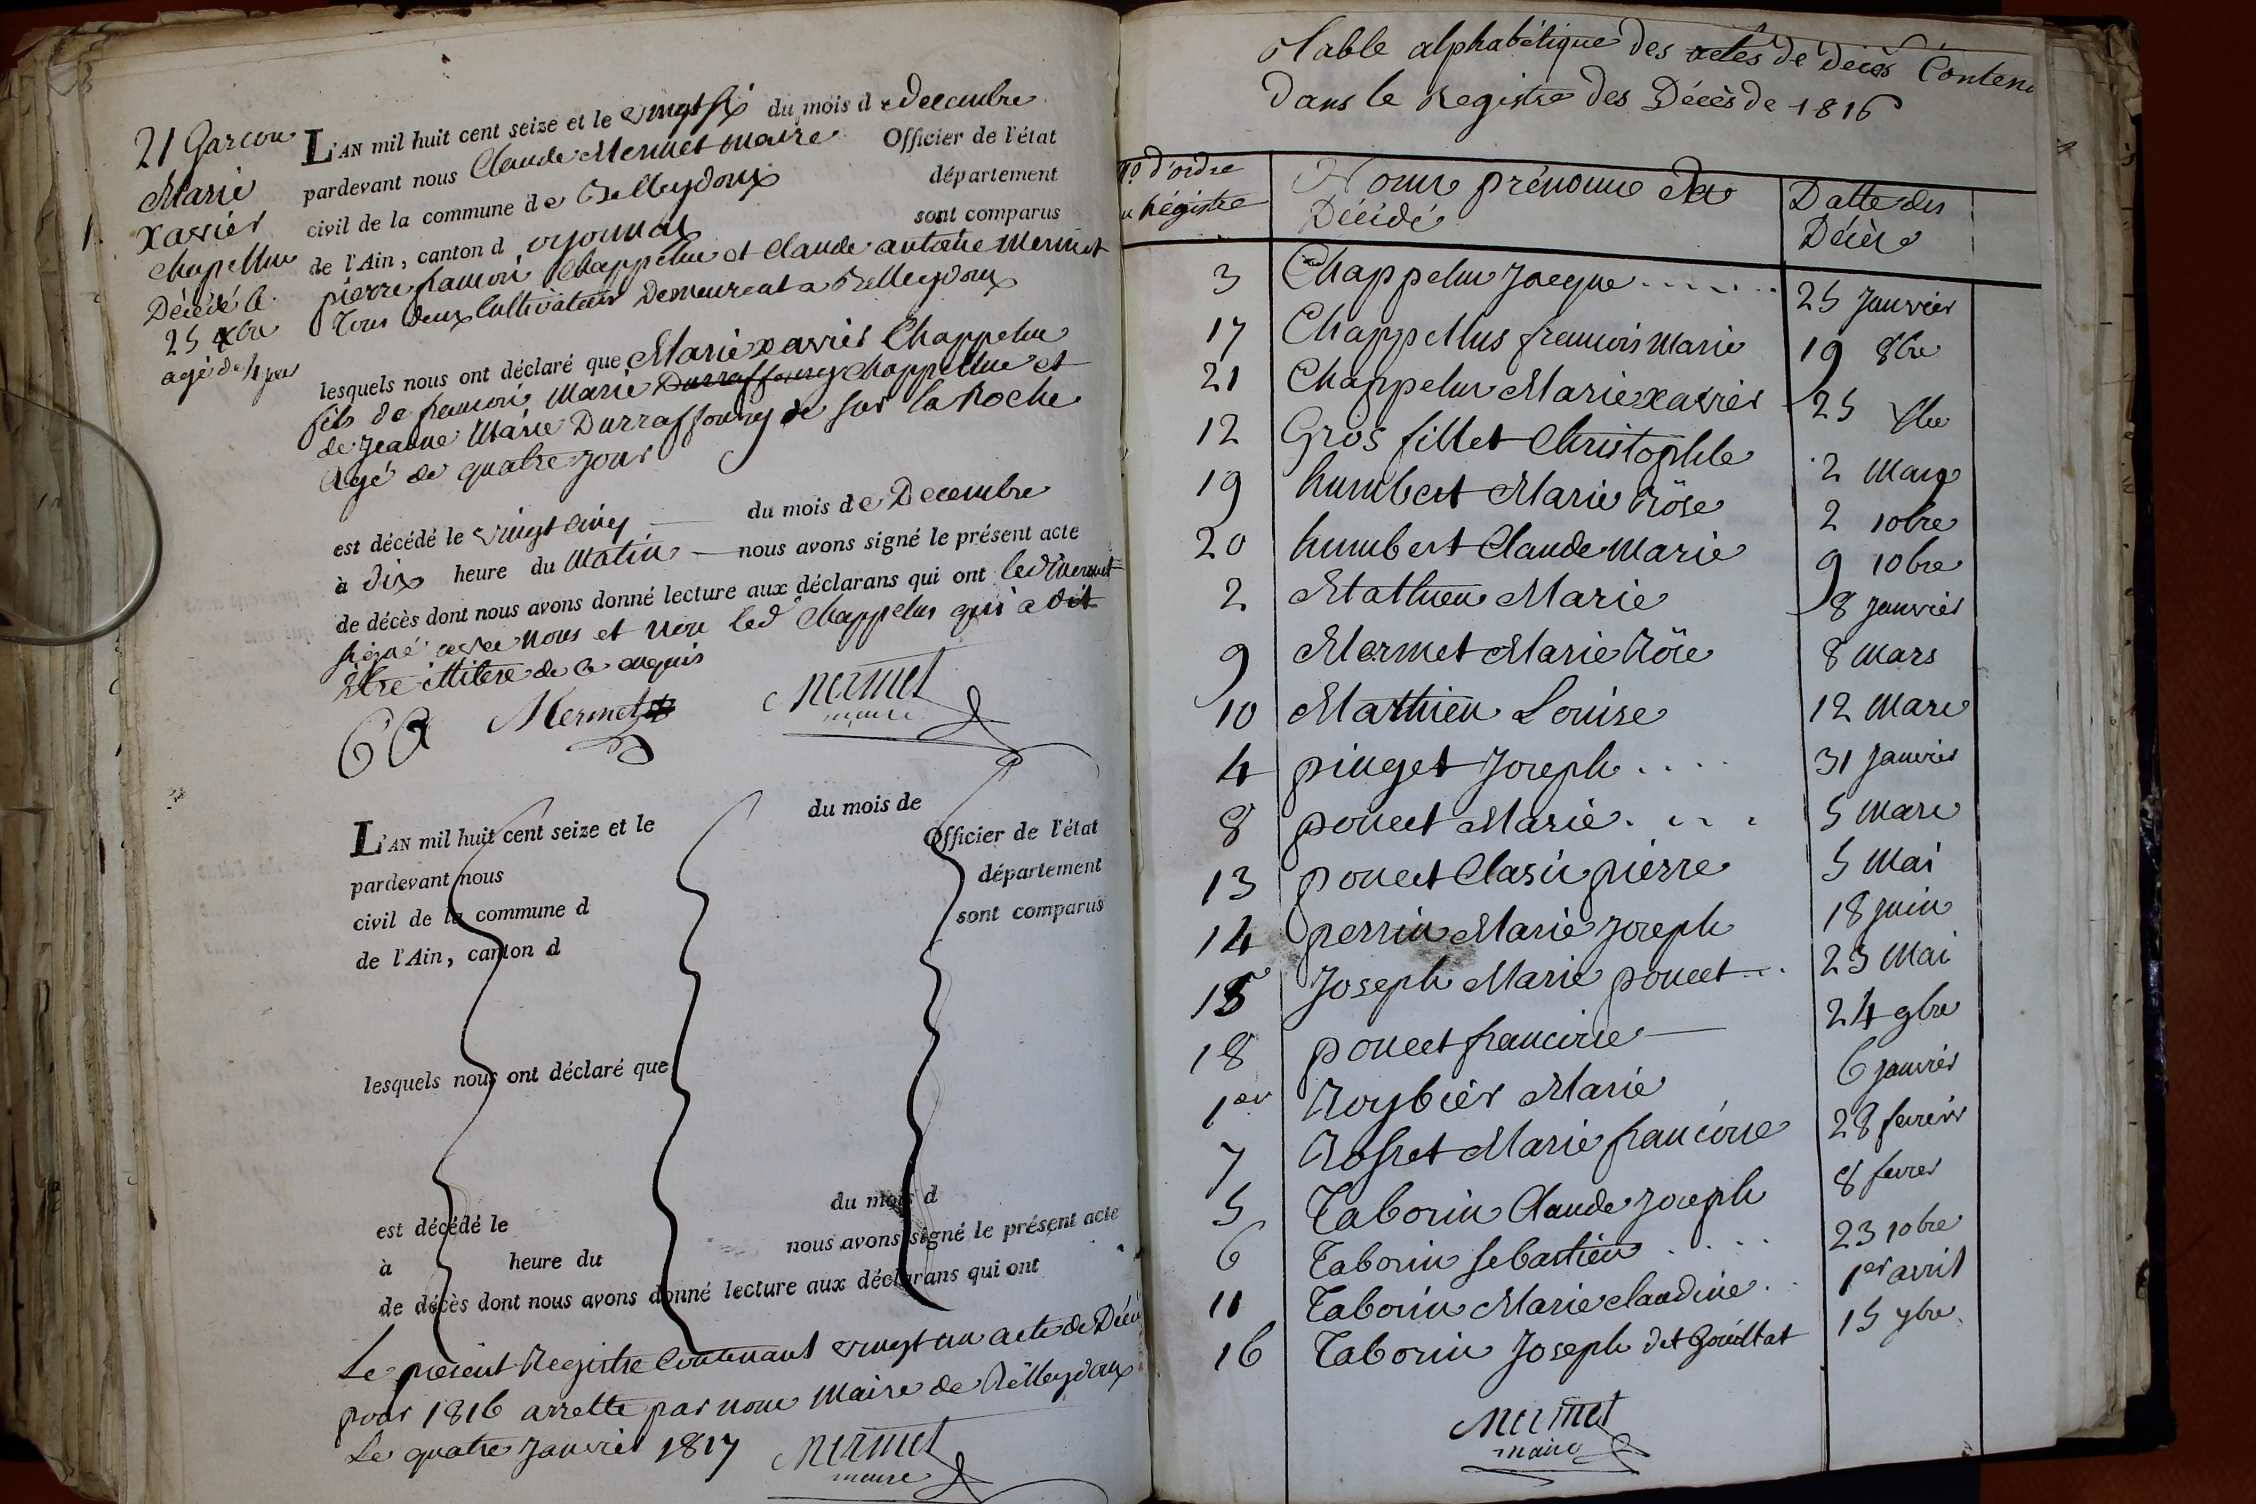 21 Garcon
Marie
Xavier
Chapellu
Décédé le
25 xbre
agé de 4 jour
L'AN mil huit cent seize et le vingt six du mois de decembre
pardevant nous Claude Mermet maire Officier de l'état
civil de la commune de Belleydoux département
de l'Ain, canton d oyonnat sont comparus
pierre francoi Chappelu et Claude antoine Mermet
Tous deux Cultivateur Demeurent a Belleydoux
lesquels nous ont déclaré que Marie xavier Chappelu
fils de francois Marie Durraffourg Chappellu et
de Jeanne Marie Durraffourg de sur la Roche
Agé de quatre jour
est décédé le vingt cinq du mois de Decembre
à dix heure du Matin nous avons signé le présent acte
de décès dont nous avons donné lecture aux déclarans qui ont led Mermet
signé avec nous et non led Chappelu qui a dit
être illitere de ce enquis
Mermet Mermet
maire
L'AN mil huit cent seize et le du mois de
pardevant nous Officier de l'état
civil de la commune d département
de l'Ain, canton d sont comparus
lesquels nous ont déclaré que
est décédé le du mois d
à heure du nous avons signé le présent acte
de décès dont nous avons donné lecture aux déclarans qui ont
Le présent Registre Contenant vingt un acte de Décè
pour 1816 arretté par nous Maire de Belleydoux
Le quatre Janvier 1817 Mermet
maire
Table alphabétique des actes de décès Conten
dans le Registre des Décès de 1816
No d'ordre Noms prénoms du Datte des
Régistre Décédé Décès
3 Chappelu Jacque 25 Janvier
17 Chappellus francois Marie 19 8bre
21 Chappelu Marie xavier 25 xbre
12 Gros fillet Christophle 2 Mars
19 humbert Marie Röse 2 10bre
20 humbert Claude Marie 9 10bre
2 Mathieu Marie 8 Janvier
9 Mermet Marie Röse 8 Mars
10 Mathieu Louise 12 Mars
4 pinget Joseph 31 Janvier
8 poncet Marie 5 Mars
13 poncet Clasii pierre 5 Mai
14 perrin Marie Joseph 18 Juin
15 Joseph Marie poncet 25 Mai
18 poncet francoise 24 9bre
1er Roybier Marie 6 Janvier
7 Rosset Marie francoise 28 fevrier
5 Taborin Claude Joseph 8 fevrer
6 Taborin Sebastien 23 10bre
11 Taborin Marie claudine 1er avril
16 Taborin Joseph dit Gouillat 15 7bre
Mermet
maire